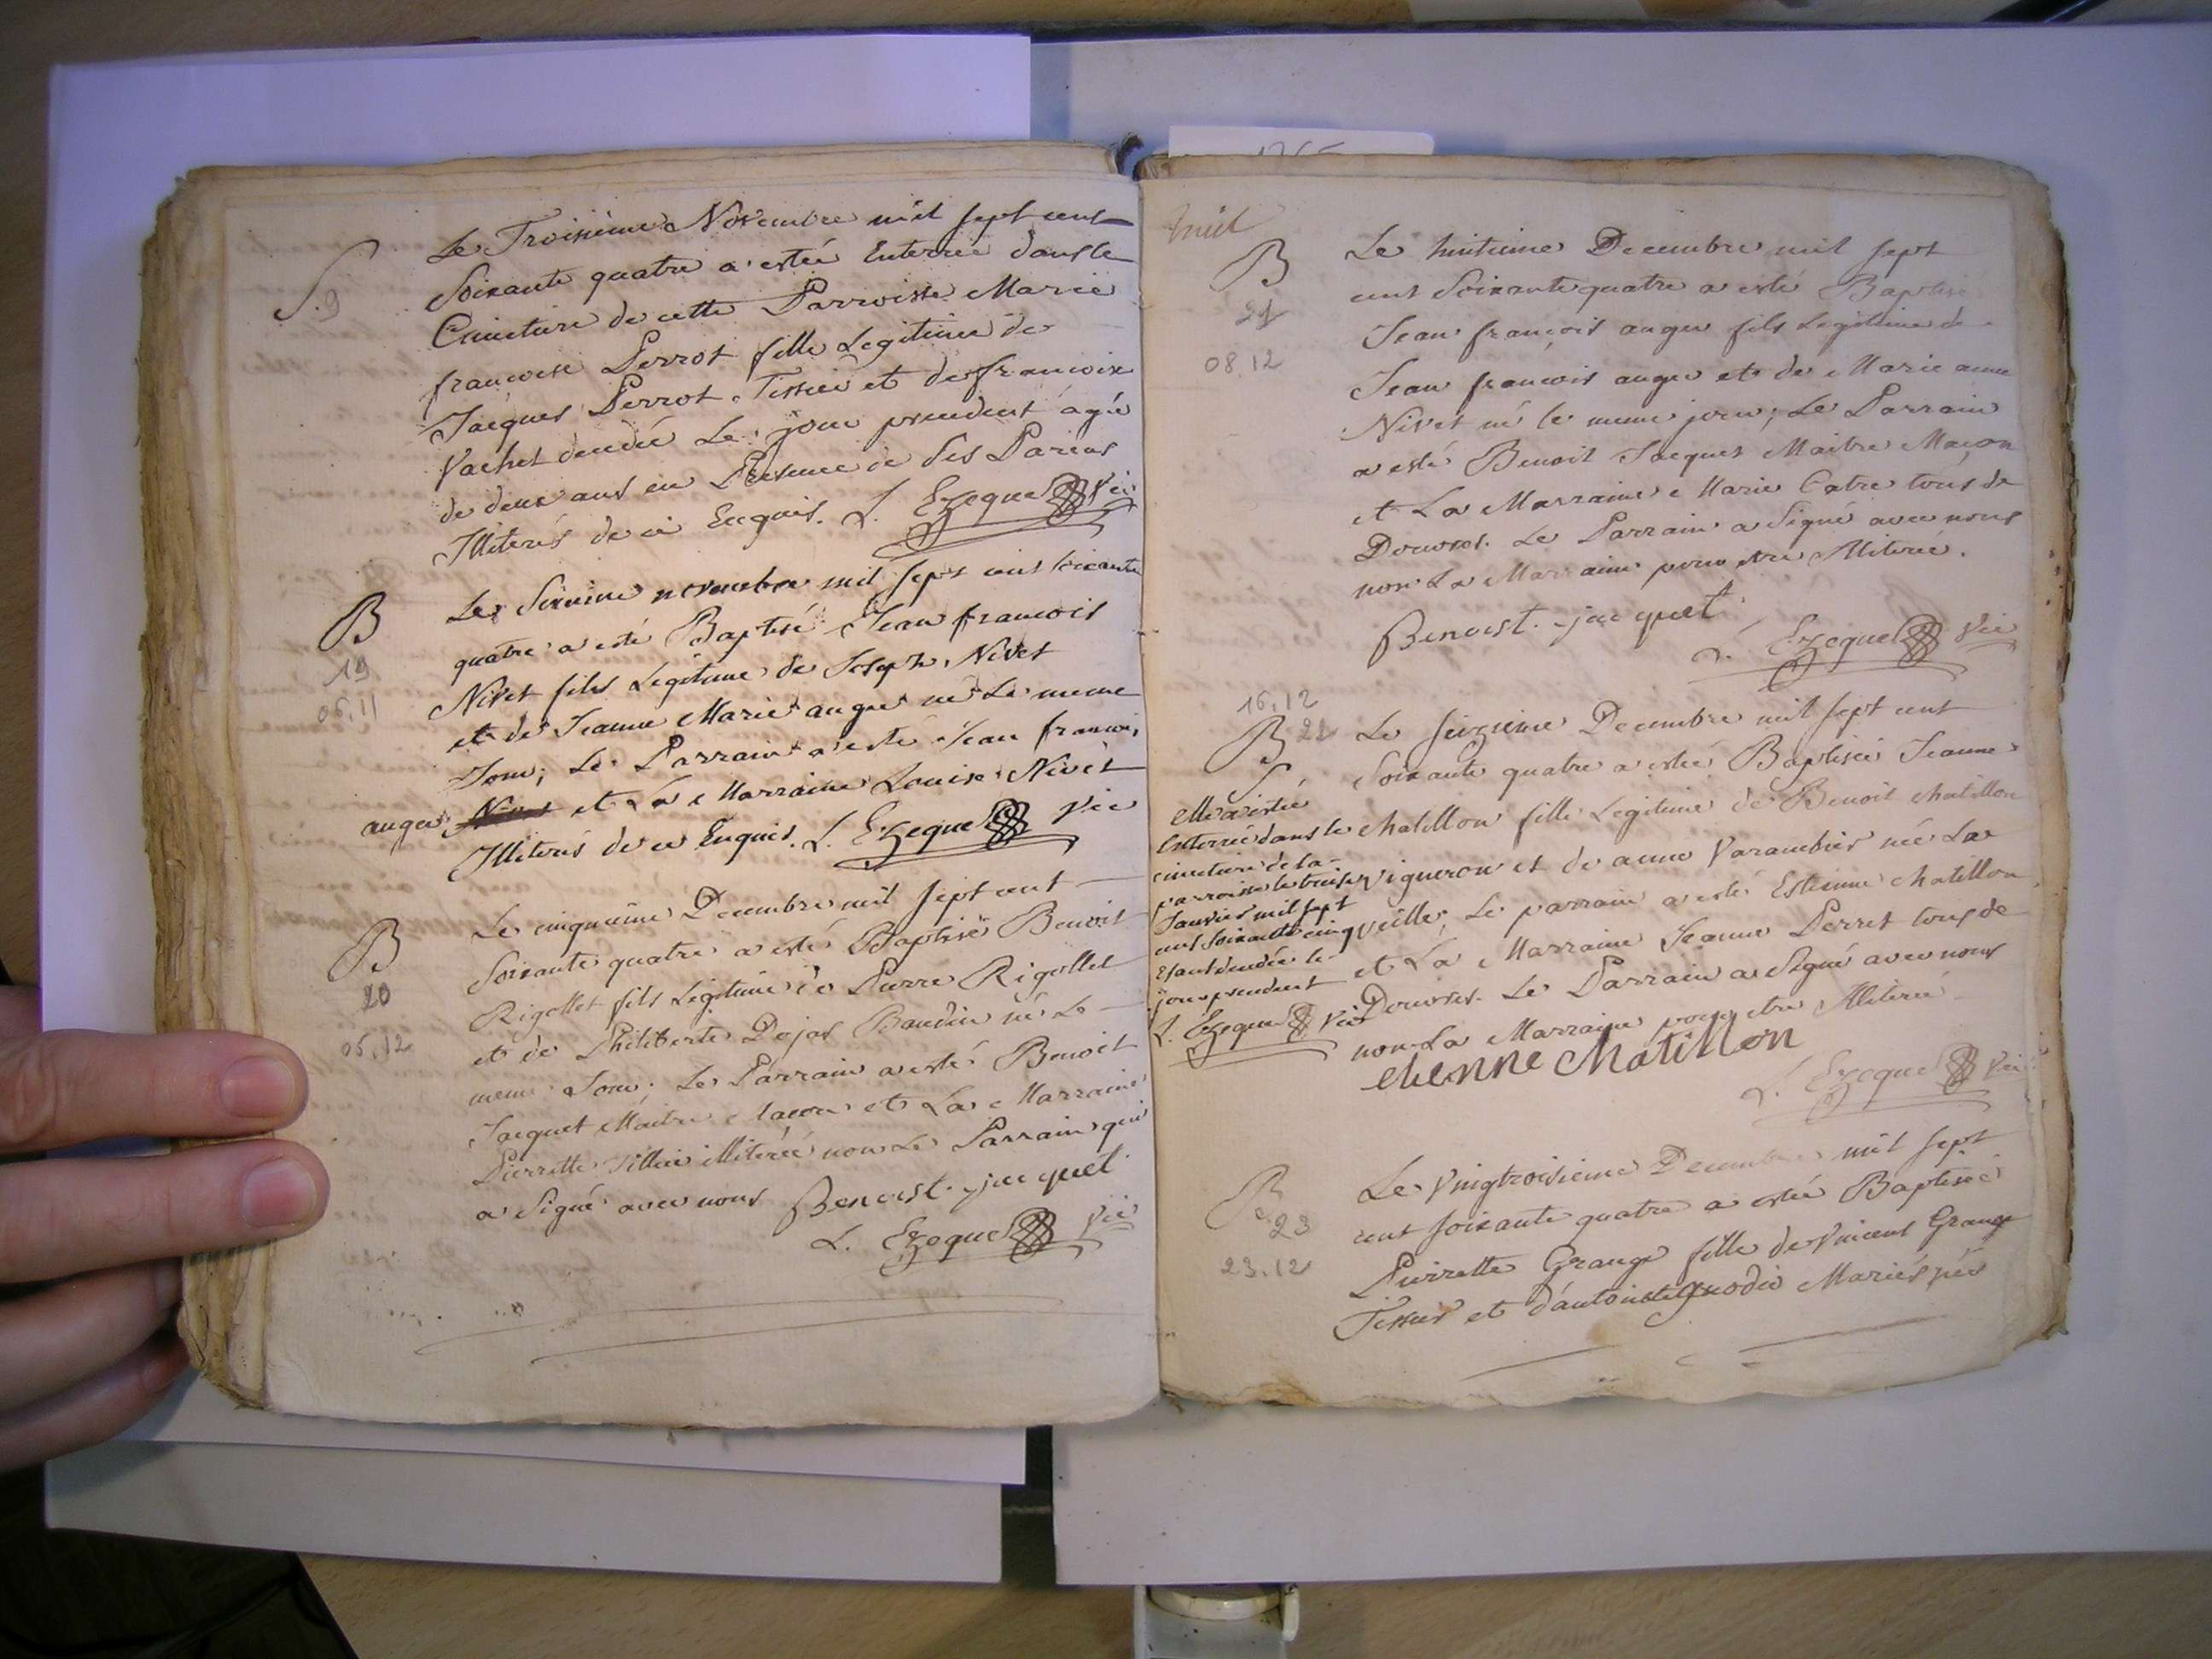 S. 9
Le Troisième Novembre mil sept cent
Soixante quatre a estée Enterrée dans le
Cimetiere de cette Parroisse Marie
francoise Perrot fille Legitime de
Jacques Perrot Tissier et de francoise
Vachet decedée Le jour precedent agée
de deux ans en Presence de Ses Parens
Illiterés de ce Enquis. L. Ezeque Vic
B
19
06.11
Le Sixieme novembre mil sept cent soixante
quatre a esté Baptisé Jean francois
Nivet fils Legitime de Joseph Nivet
et de Jeanne Marie auger né Le meme
Jour; Le Parrain a esté Jean francois
auger Nivet et La Marraine Louise Nivet
Illiterés de ce Enquis. L. Ezeque Vic
B
20
05.12
Le cinquième Decembre mil sept cent
Soixante quatre a esté Baptisé Benoit
Rigollet fils Legitime de Pierre Rigollet
et de Philiberte Dojas Baudin né Le
meme Jour; Le Parrain a esté Benoit
Jacquet Maitre Maçon et La Marraine
Pierrette illiterée non Le Parrain qui
a Signé avec nous Benoist jacquet
L. Ezeque Vic
mil
B
21
08.12
Le huitieme Decembre mil sept
cent Soixante quatre a esté Baptisé
Jean françois auger fils Legitime de
Jean francois auger et de Marie anne
Nivet né le meme jour; Le Parrain
a esté Benoit Jacquet Maitre Maçon
et La Marraine Marie Catre tous de
Le Parrain a Signé avec nous
non La Marraine pour etre Illiterée.
Benoist jacquet
L. Ezeque Vic
16.12
B 22
S
Le seizieme Decembre mil sept cent
Soixante quatre a estée Baptisée Jeanne
chatillon fille Legitime de Benoit chatillon
vigneron et de anne Varambier née La
veille; Le parrain a esté Estienne chatillon
et La Marraine Jeanne Perret tous de
Le Parrain a Signé avec nous
non La Marraine pour etre Illiterée
etienne chatillon
L. Ezeque Vic
elle a estée
Enterrée dans le
cimetiere de la
parroisse le treize
Janvier mil sept
cent soixante cinq
etant decedée le
jour precedent
L. Ezeque Vic
B
23
23.12
Le Vingtroisieme Decembre mil sept
cent soixante quatre a estée Baptisée
Pierrette Grange fille de Vincent Grange
Tissier et d'antoinette Mariés née